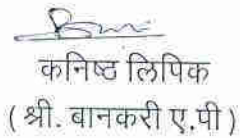 कनिष्ठ लिपिक
( श्री. बानकरी ए.पी )